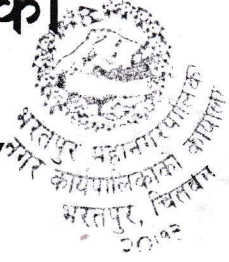 का
भरतपुर महानगरपालिका
नगर कार्यपालिकाको कार्यालय
भरतपुर, चितवन
२०७३